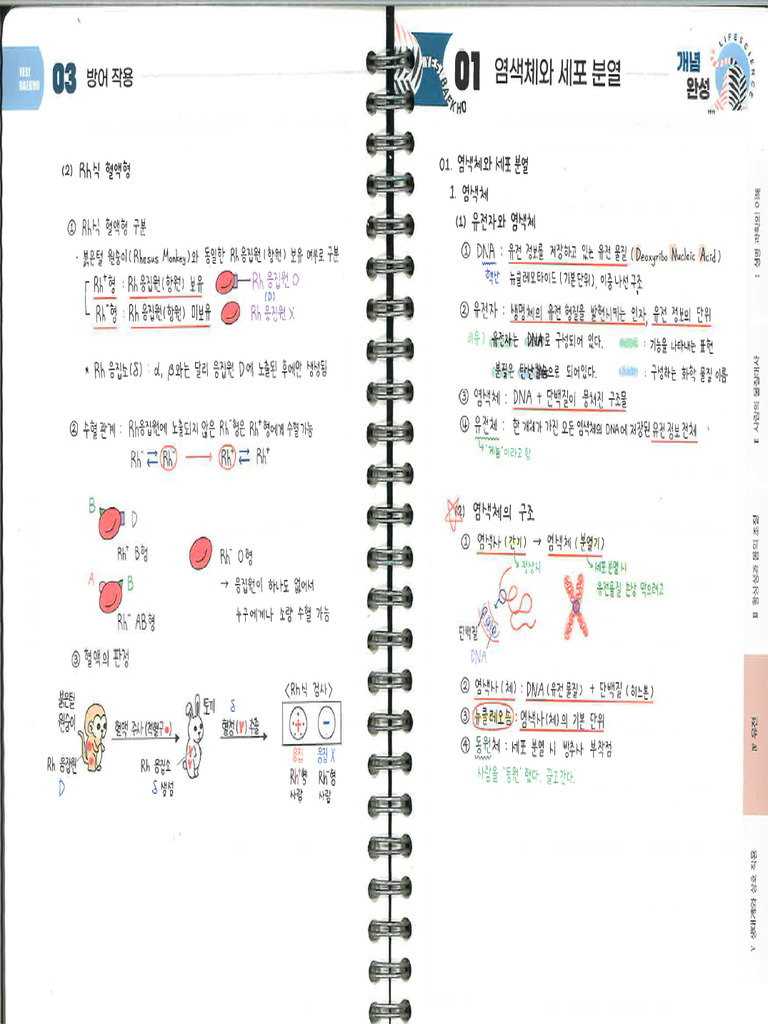 YES! BAEKHO
03 방어 작용
(2) Rh식 혈액형
① Rh식 혈액형 구분
· 붉은털 원숭이(Rhesus Monkey)와 동일한 Rh응집원(항원) 보유 여부로 구분
Rh⁺형 : Rh응집원(항원) 보유
Rh 응집원 O
(D)
Rh⁻형 : Rh 응집원(항원) 미보유
Rh 응집원 X
* Rh 응집소(δ) : α, β와는 달리 응집원 D에 노출된 후에만 생성됨
② 수혈 관계 : Rh응집원에 노출되지 않은 Rh⁻형은 Rh⁺형에게 수혈가능
Rh⁻ ⇄ Rh⁻ → Rh⁺ ⇄ Rh⁺
B
D
Rh⁺ B형
Rh⁻ O형
A
B
Rh⁻ AB형
→ 응집원이 하나도 없어서
누구에게나 소량 수혈 가능
③ 혈액의 판정
<Rh식 검사>
붉은털
원숭이
혈액 주사(적혈구)
토끼
δ
혈청 추출
+
−
Rh 응집원
D
Rh 응집소
δ 생성
응집
응집 X
Rh⁺형
사람
Rh⁻형
사람
YES! BAEKHO
01 염색체와 세포 분열
개념
완성
LIFESCIENCE
01. 염색체와 세포 분열
1. 염색체
(1) 유전자와 염색체
① DNA : 유전 정보를 저장하고 있는 유전 물질(Deoxyribo Nucleic Acid)
핵산 뉴클레오타이드(기본단위), 이중나선구조
② 유전자 : 생명체의 유전 형질을 발현시키는 인자, 유전 정보의 단위
비유) 유전자는 DNA로 구성되어 있다.
: 기능을 나타내는 표현
으로 되어있다.
: 구성하는 화학 물질 이름
③ 염색체 : DNA + 단백질이 뭉쳐진 구조물
④ 유전체 : 한 개체가 가진 모든 염색체의 DNA에 저장된 유전정보 전체
↳ "게놈"이라고 함
(2) 염색체의 구조
① 염색사(간기) → 염색체(분열기)
평상시
세포분열 시
유전물질 손상 막으려고
단백질
DNA
② 염색사(체) : DNA(유전 물질) + 단백질(히스톤)
③ 뉴클레오솜 : 염색사(체)의 기본 단위
④ 동원체 : 세포 분열 시 방추사 부착점
사람을 '동원'했다. 끌고간다.
Ⅰ 생명 과학의 이해
Ⅱ 사람의 물질대사
Ⅲ 항상성과 몸의 조절
Ⅳ 유전
Ⅴ 생태계와 상호 작용